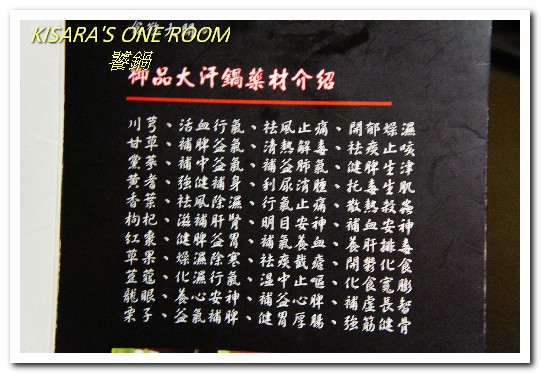 KISARA'S ONE ROOM
饕鍋
御品大汗鍋藥材介紹
川芎、活血行氣、祛風止痛、開郁燥濕
甘草、補脾益氣、清熱解毒、祛痰止咳
黨蔘、補中益氣、補益肺氣、健脾生津
黃耆、強健補身、利尿消腫、托毒生肌
香葉、祛風除濕、行氣止痛、散熱殺蟲
枸杞、滋補肝腎、明目安神、補血安神
紅棗、健脾益胃、補氣養血、養肝排毒
草果、燥濕除寒、祛痰截瘧、開鬱化食
荳蔻、化濕行氣、溫中止嘔、化食寬膨
龍眼、養心安神、補益心脾、補虛長智
栗子、益氣補脾、健胃厚腸、強筋健骨